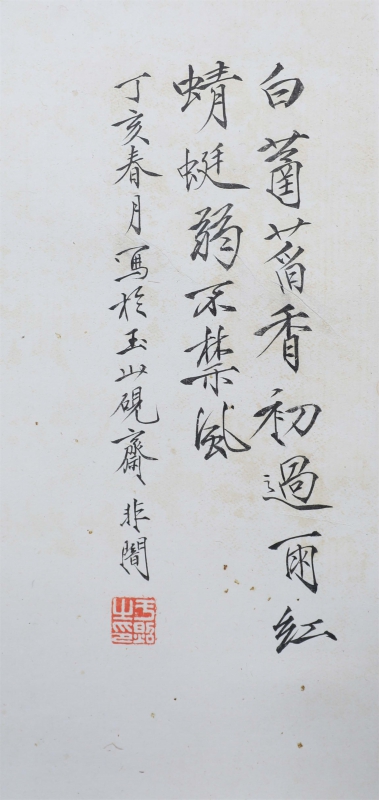 白菡萏香初過雨紅
蜻蜓弱不禁風
丁亥春月寫於玉山硯齋非闇
于照之印